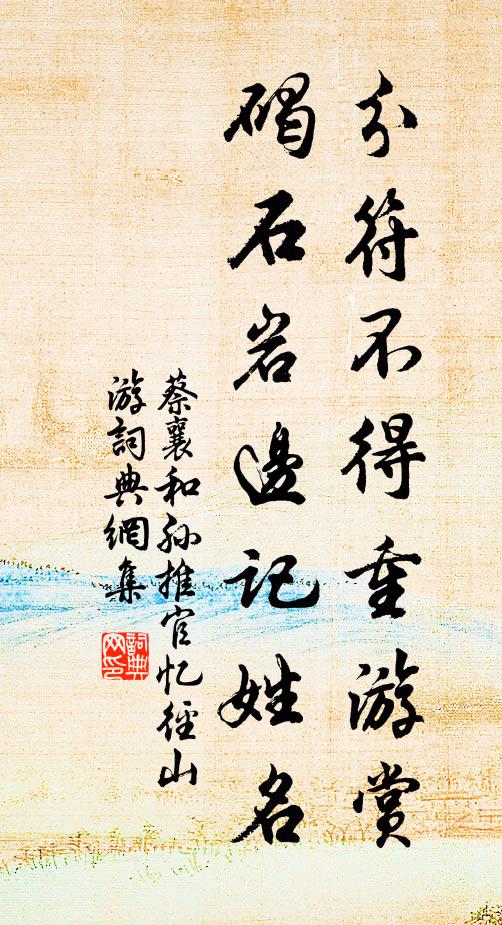 分符不得重游赏
碣石岩邊记姓名
蔡襄和孙推官忆径山
游詞典網集
詞典
网印